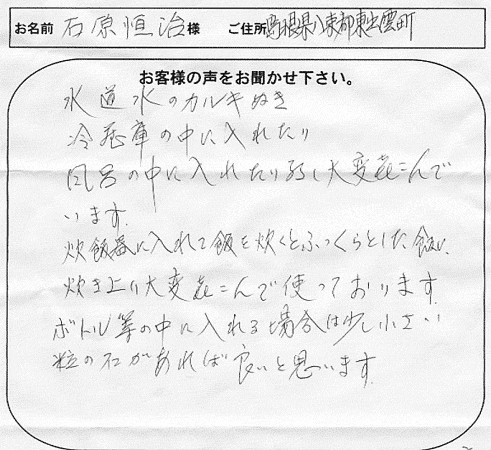 お名前 石原恒治様 ご住所島根県八束郡東出雲町
お客様の声をお聞かせ下さい。
水道水のカルキぬき
冷蔵庫の中に入れたり
風呂の中に入れたり 大変喜こんで
います。
炊飯器に入れて飯を炊くとふっくらとした飯に
炊き上り大変喜こんで使っております。
ボトル等の中に入れる場合は少し小さい
粒の石があれば良いと思います。